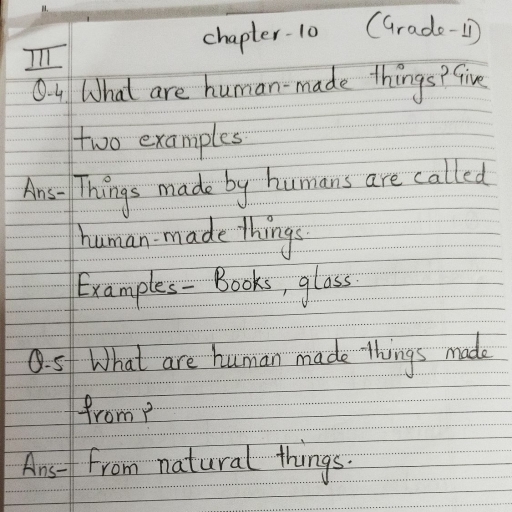 chapter-10 (Grade-II)
III
Q-4 What are human-made things? Give
two examples
Ans- Things made by humans are called
human-made things.
Examples- Books, glass.
Q-5 What are human made things made
from?
Ans- From natural things.